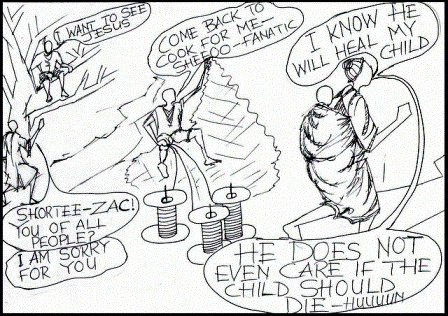 I WANT TO SEE
JESUS
SHORTEE-ZAC!
YOU OF ALL
PEOPLE?
I AM SORRY
FOR YOU
COME BACK TO
COOK FOR ME-
SHE OO-FANATIC
I KNOW HE
WILL HEAL MY
CHILD
HE DOES NOT
EVEN CARE IF THE
CHILD SHOULD
DIE-HUUUUN